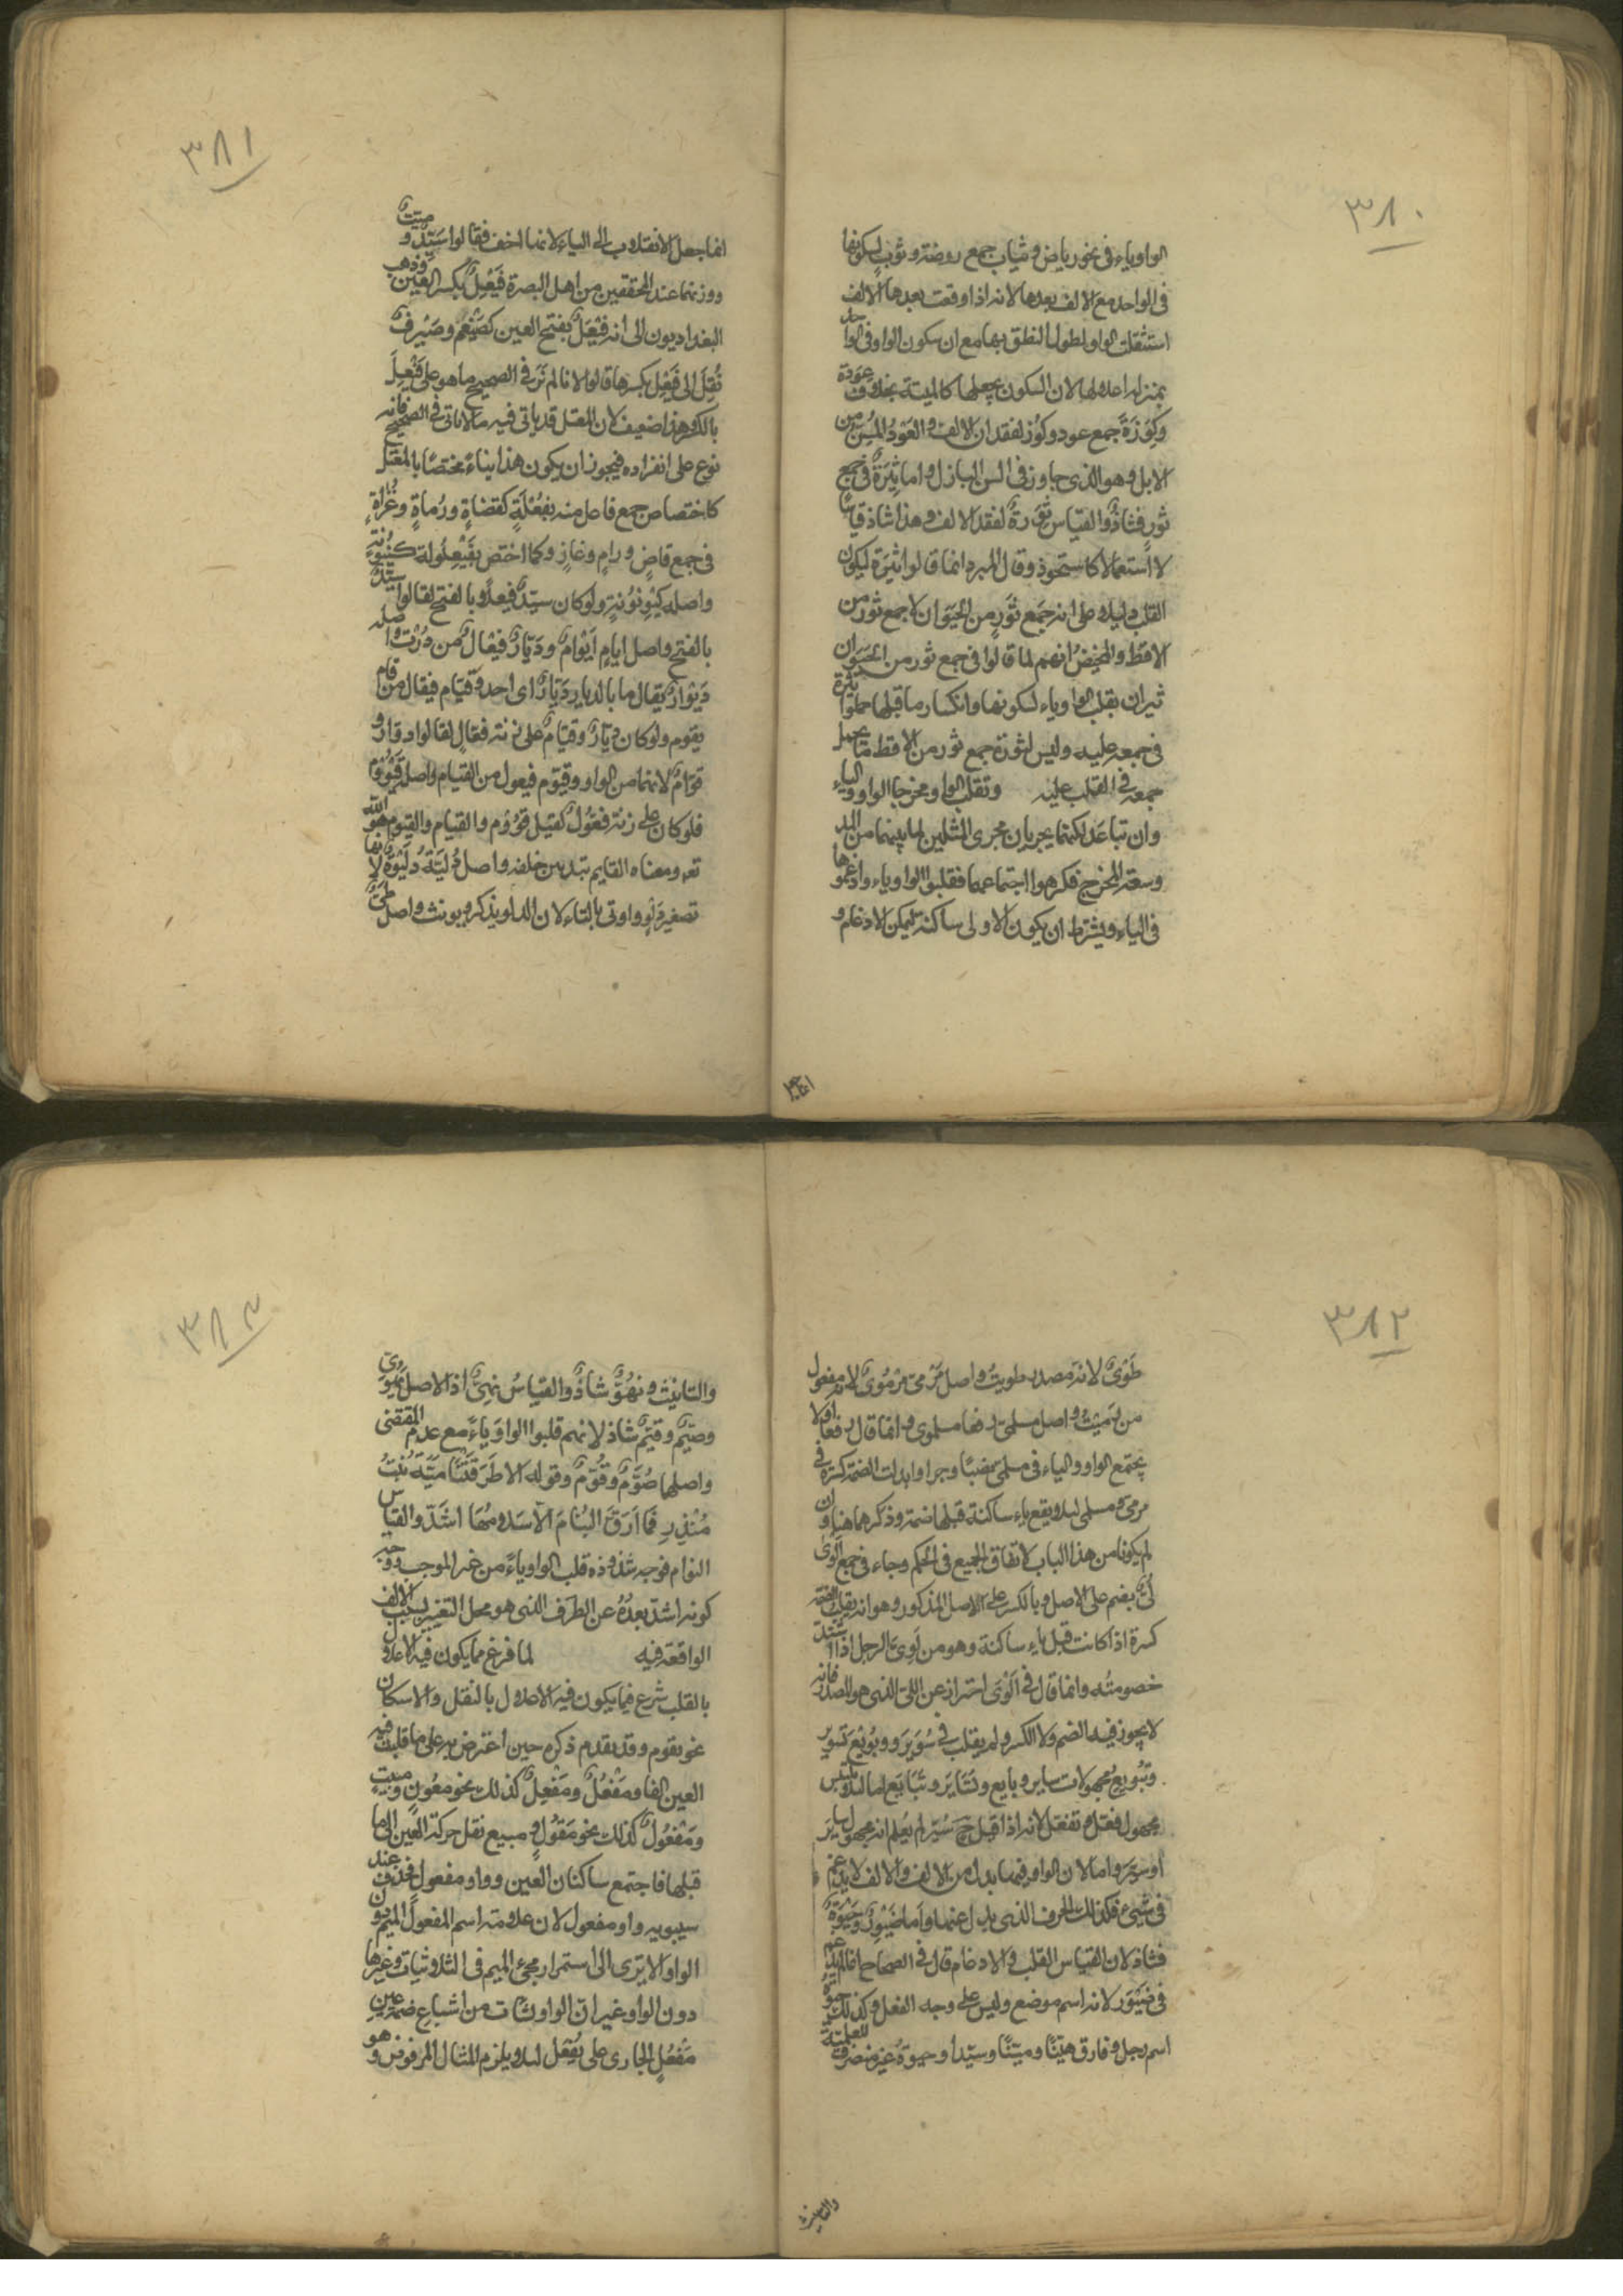 ٣٨٠
الواو ياء فى نحو رياض وثياب جمع روضة وثوب لسكونها
فى الواحد مع الالف بعدها لانه اذا وقعت بعدها الالف
استثقلت الواو لطول النطق بها مع ان سكون الواو فى الواحد
بمنزلة اعلالها لان السكون يجعلها كالميتة بخلاف عِوَدة
وكِوَزَة جمع عود وكوز لفقدان الالف والعَوْدُ المُسِنّ من
الابل وهو الذى جاوز فى السن البازل واما ثِيَرَةٌ فى جمع
ثور فشاذ والقياس ثِوَرةٌ لفقد الالف وهذا شاذ قياسًا
لا استعمالا كاستحوذ وقال المبرد انما قالوا ثيَرَة ليكون
القلب دليلا على انه جَمع ثَورٍ من الحَيَوان لا جمع ثور من
الاقط والمحيضُ انهم لما قالوا فى جمع ثور من الحَيَوان
ثيران بقلب الواو ياء لسكونها وانكسار ما قبلها حملوا ثيرة
فى جمعه عليه وليس لثورة جمع ثور من الاقط ما يحمل
جمعه فى القلب عليه وتقلب الواو مخرجا الواو والياء
وان تباعَد لكنهما يجريان مجرى المثلين لما بينهما من المد
وسعة المخرج فكرهوا اجتماعهما فقلبوا الواو ياء وادغموها
فى الياء ويشترط ان يكون الاولى ساكنة ليمكن الادغام و
انما
٣٨١
انما جعل الانقلاب الى الياء لانها اخف فقالوا سَيّدٌ و ميّت
ووزنهما عند المحققين من اهل البصرة فَيْعِلٌ بكسر العين وذهب
البغداديون الى انه فيْعَلٌ بفتح العين كضَيْغَم وصَيْرفٌ
نُقِلَ الى فَيْعِل بكسرها قالوا لانا لم نَرَ فى الصحيح ما هو على فَيْعِلَ
بالكسر وهذا ضعيف لان المعتل قد ياتى فيه ما لا ياتى فى الصحيح فانه
نوع على انفراده فيجوز ان يكون هذا بناءً مختصًا بالمعتل
كاختصاص جمع فاعل منه بفُعْلَةٍ كقضاةٍ ورُماةٍ وغُزاةٍ
فى جمع قاضٍ ورامٍ وغازٍ وكما اختص بفَيْعِلُولة كَيْنُونةٍ
واصله كيْوِنُونةٍ ولو كان سيّدٌ فيعلًا بالفتح لقالوا سيّدٌ
بالفتح واصل ايامٍ اَيْوامٌ ودَيّارٌ فيْعَالٌ من دُرْتُ واصله
دَيْوارٌ يقال ما بالدار دَيّارٌ اى احد وقيّام فيعال من قام
يقوم ولو كان ديّارٌ وقيّامٌ على زنة فعّالٍ لقالوا دوّارٌ و
قوّامٌ لانهما من الواو وقيّوم فيعول من القيام واصله قَيْوُوم
فلو كان على زنة فعّول لقيل قوّوم والقيام والقيوم هو الله
تعه ومعناه القايم بتدبير خلقه واصل دُليّةٌ دُلَيْوَةٌ لانها
تصغير دَلْوٍ واوتى بالتاء لان الدلو يذكر ويونث واصل طَىٍّ
٣٨٢
طَوْىٌ لانه مصدر طويتُ واصل مَرْمىّ مَرْمُوىٌ لانه مفعول
من رميتُ واصل مسلمىّ رفعا مسلموى وانما قال رفعًا اذ لا
يجتمع الواو والياء فى مسلمى نصبًا وجرا وابدلت الضمة كسرة فى
مرمىّ ومسلمى لئلا يقع ياء ساكنة قبلها ضمة وذكرهما هنا وان
لم يكونا من هذا الباب لاتفاق الجميع فى الحكم وجاء فى جمع اَلْوَى
لُىٌّ بضم على الاصل وبالكسر على الاصل المذكور وهو انه يقلب الضمة
كسرة اذا كانت قبل ياء ساكنة وهو من لَوِىَ الرجل اذا اشتدّ
خصومتُه وانما قال فى اَلْوَى احتراز عن اللىّ الذى هو المصدر فانه
لا يجوز فيه الضم ولا الكسر ولم يقلب فى سُوْيَر وبُويْعَ تسُوير
وتبُويع مجهولات ساير وبايع وتَسَايَر وتَبَايَع لما لئلا يلتبس
مجهول فعّل وتفعّل لانه اذا قيل سُيّر لم يُعلم انه مجهول سايَرَ
اَو سيّر واما لان الواو فيهما بدل من الالف والالف لا يدغم
فى شيىء فكذلك الحرف الذى بدل عنها واَما ضَيْوَنٌ وحَيْوَةٌ
فشاذ لان القياس القلب والادغام قال فى الصحاح انما لم يدغم
فى ضَيْوَن لانه اسم موضع وليس على وجه الفعل وكذلك حيوة
اسم رجل وفارق هيّنًا وميّتًا وسيّدا وحيوةُ غير منصرف للعلمية
والتانيث
٣٨٣
والتانيث ونهُوٌّ شاذٌ والقياسُ نهِىٌّ اذ الاصل نهُوى
وصيّم وقيّم شاذ لانهم قلبوا الواو ياءً مع عدم المقتضى
واصلها صُوَّم وقُوّم وقوله الا طَرَقَتْنا ميّةُ بنتُ
مُنْذِرِ فما اَرَقَ النُيّامَ الا سَلامُها اَشذّ والقياس
النوام فوجه شذوذه قلب الواو ياءً من غير الموجب ووجه
كونه اشذّ بعدُهُ عن الطرَف الذى هو محل التغيير بسبب الالف
الواقعة فيه لما فرغ مما يكون فيه الاعلال
بالقلب شرع فيما يكون فيه الاعلال بالنقل والاسكان
نحو يقوم وقد تقدم ذكره حين اعترض به على ما قلبت فيه
العين الفا ومَفْعُلٌ ومَفْعِلٌ كذلك نحو معُونٍ ومبيتٍ
ومَفْعُولٌ كذلك نحو مَقُولٍ ومبيع نقل حركة العين الى ما
قبلها فاجتمع ساكنان العين وواو مفعول فحذف عند
سيبويه واو مفعول لان علامة اسم المفعول الميم دون
الواو الا يَرى الى استمرار مجىء الميم فى الثلاثيات وغيرها
دون الواو غير انّ الواو نشأت من اشباع ضمة عين
مَفْعُلٍ الجارى على يُفْعَل لئلا يلزم المثال المرفوض وهو